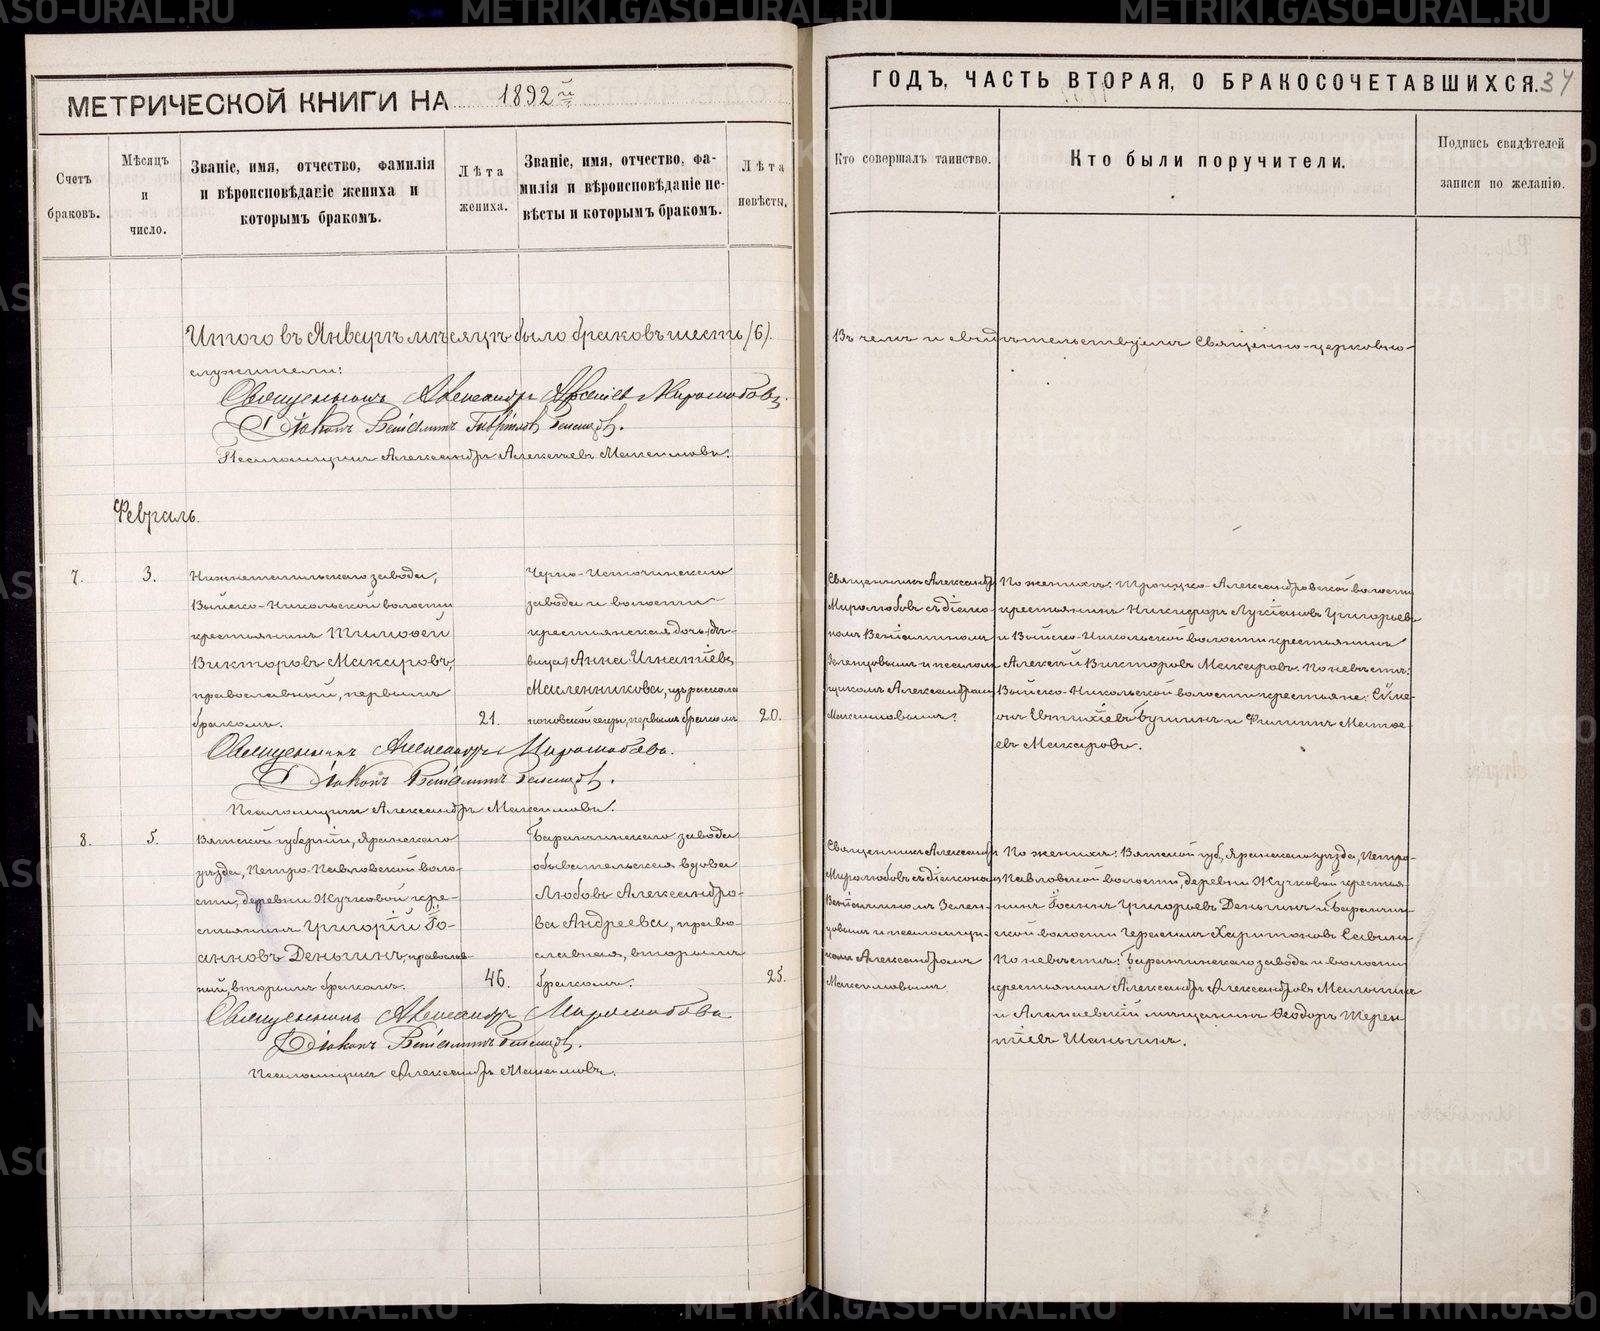 МЕТРИЧЕСКОЙ КНИГИ НА 1892й
ГОДЪ, ЧАСТЬ ВТОРАЯ, О БРАКОСОЧЕТАВШИХСЯ. 34
Счетъ браковъ.
Мѣсяцъ и число.
Званіе, имя, отчество, фамилія
и вѣроисповѣданіе жениха и
которымъ бракомъ.
Лѣта жениха.
Званіе, имя, отчество, фа-
милія и вѣроисповѣданіе не-
вѣсты и которымъ бракомъ.
Лѣта невѣсты.
Кто совершалъ таинство.
Кто были поручители.
Подпись свидѣтелей
записи по желанію.
Итого въ Январѣ мѣсяцѣ было браковъ шесть /6/. Въ чемъ и свидѣтельствуемъ Священно-церковно-
служители:
Священникъ Александръ Миролюбовъ.
Діаконъ Веніаминъ Гавріиловъ Зеленцовъ.
Псаломщикъ Александръ Алексѣевъ Максимовъ.
Февраль.
7.
3.
Нижнетагильскаго завода,
Выйско-Никольской волости
крестьянинъ Тимоѳей
Викторовъ Макаровъ,
православный, первымъ
бракомъ.
21.
Черно-Источинскаго
завода и волости
крестьянская дочь, дѣ-
вица Анна Игнатіева
Масленникова, изъ раскола
поповской секты, первымъ бракомъ
20.
Священникъ Александръ
Миролюбовъ съ діако-
номъ Веніаминомъ
Зеленцовымъ и псалом-
щикомъ Александромъ
Максимовымъ.
По женихѣ: Троицко-Александровской волости
крестьянинъ Никифоръ Лукіановъ Григорьевъ
и Выйско-Никольской волости крестьянинъ
Алексѣй Викторовъ Макаровъ. По невѣстѣ:
Выйско-Никольской волости крестьяне: Симе-
онъ Евтихіевъ Бушинъ и Филиппъ Матѳе-
евъ Макаровъ.
Священникъ Александръ Миролюбовъ.
Діаконъ Веніаминъ Зеленцовъ.
Псаломщикъ Александръ Максимовъ.
8.
5.
Вятской губерніи, Яранскаго
уѣзда, Петро-Павловской воло-
сти, деревни Жучковой кре-
стьянинъ Григорій Іо-
анновъ Деньгинъ, православ-
ный, вторымъ бракомъ.
46.
Баранчинскаго завода
обывательская вдова
Любовь Александро-
ва Андреева, право-
славная, вторымъ
бракомъ.
25.
Священникъ Александръ
Миролюбовъ съ діакономъ
Веніаминомъ Зелен-
цовымъ и псаломщи-
комъ Александромъ
Максимовымъ.
По женихѣ: Вятской губ., Яранскаго уѣзда, Петро-
Павловской волости, деревни Жучковой крестья-
нинъ Іоаннъ Григорьевъ Деньгинъ и Баранчин-
ской волости Герасимъ Харитоновъ Савинъ
По невѣстѣ: Баранчинскаго завода и волости
крестьянинъ Александръ Александровъ Малыгинъ
и Алапаевскій мѣщанинъ Ѳеодоръ Терен
тіевъ Шаньгинъ.
Священникъ Александръ Миролюбовъ
Діаконъ Веніаминъ Зеленцовъ.
Псаломщикъ Александръ Максимовъ.
METRIKI.GASO-URAL.RU